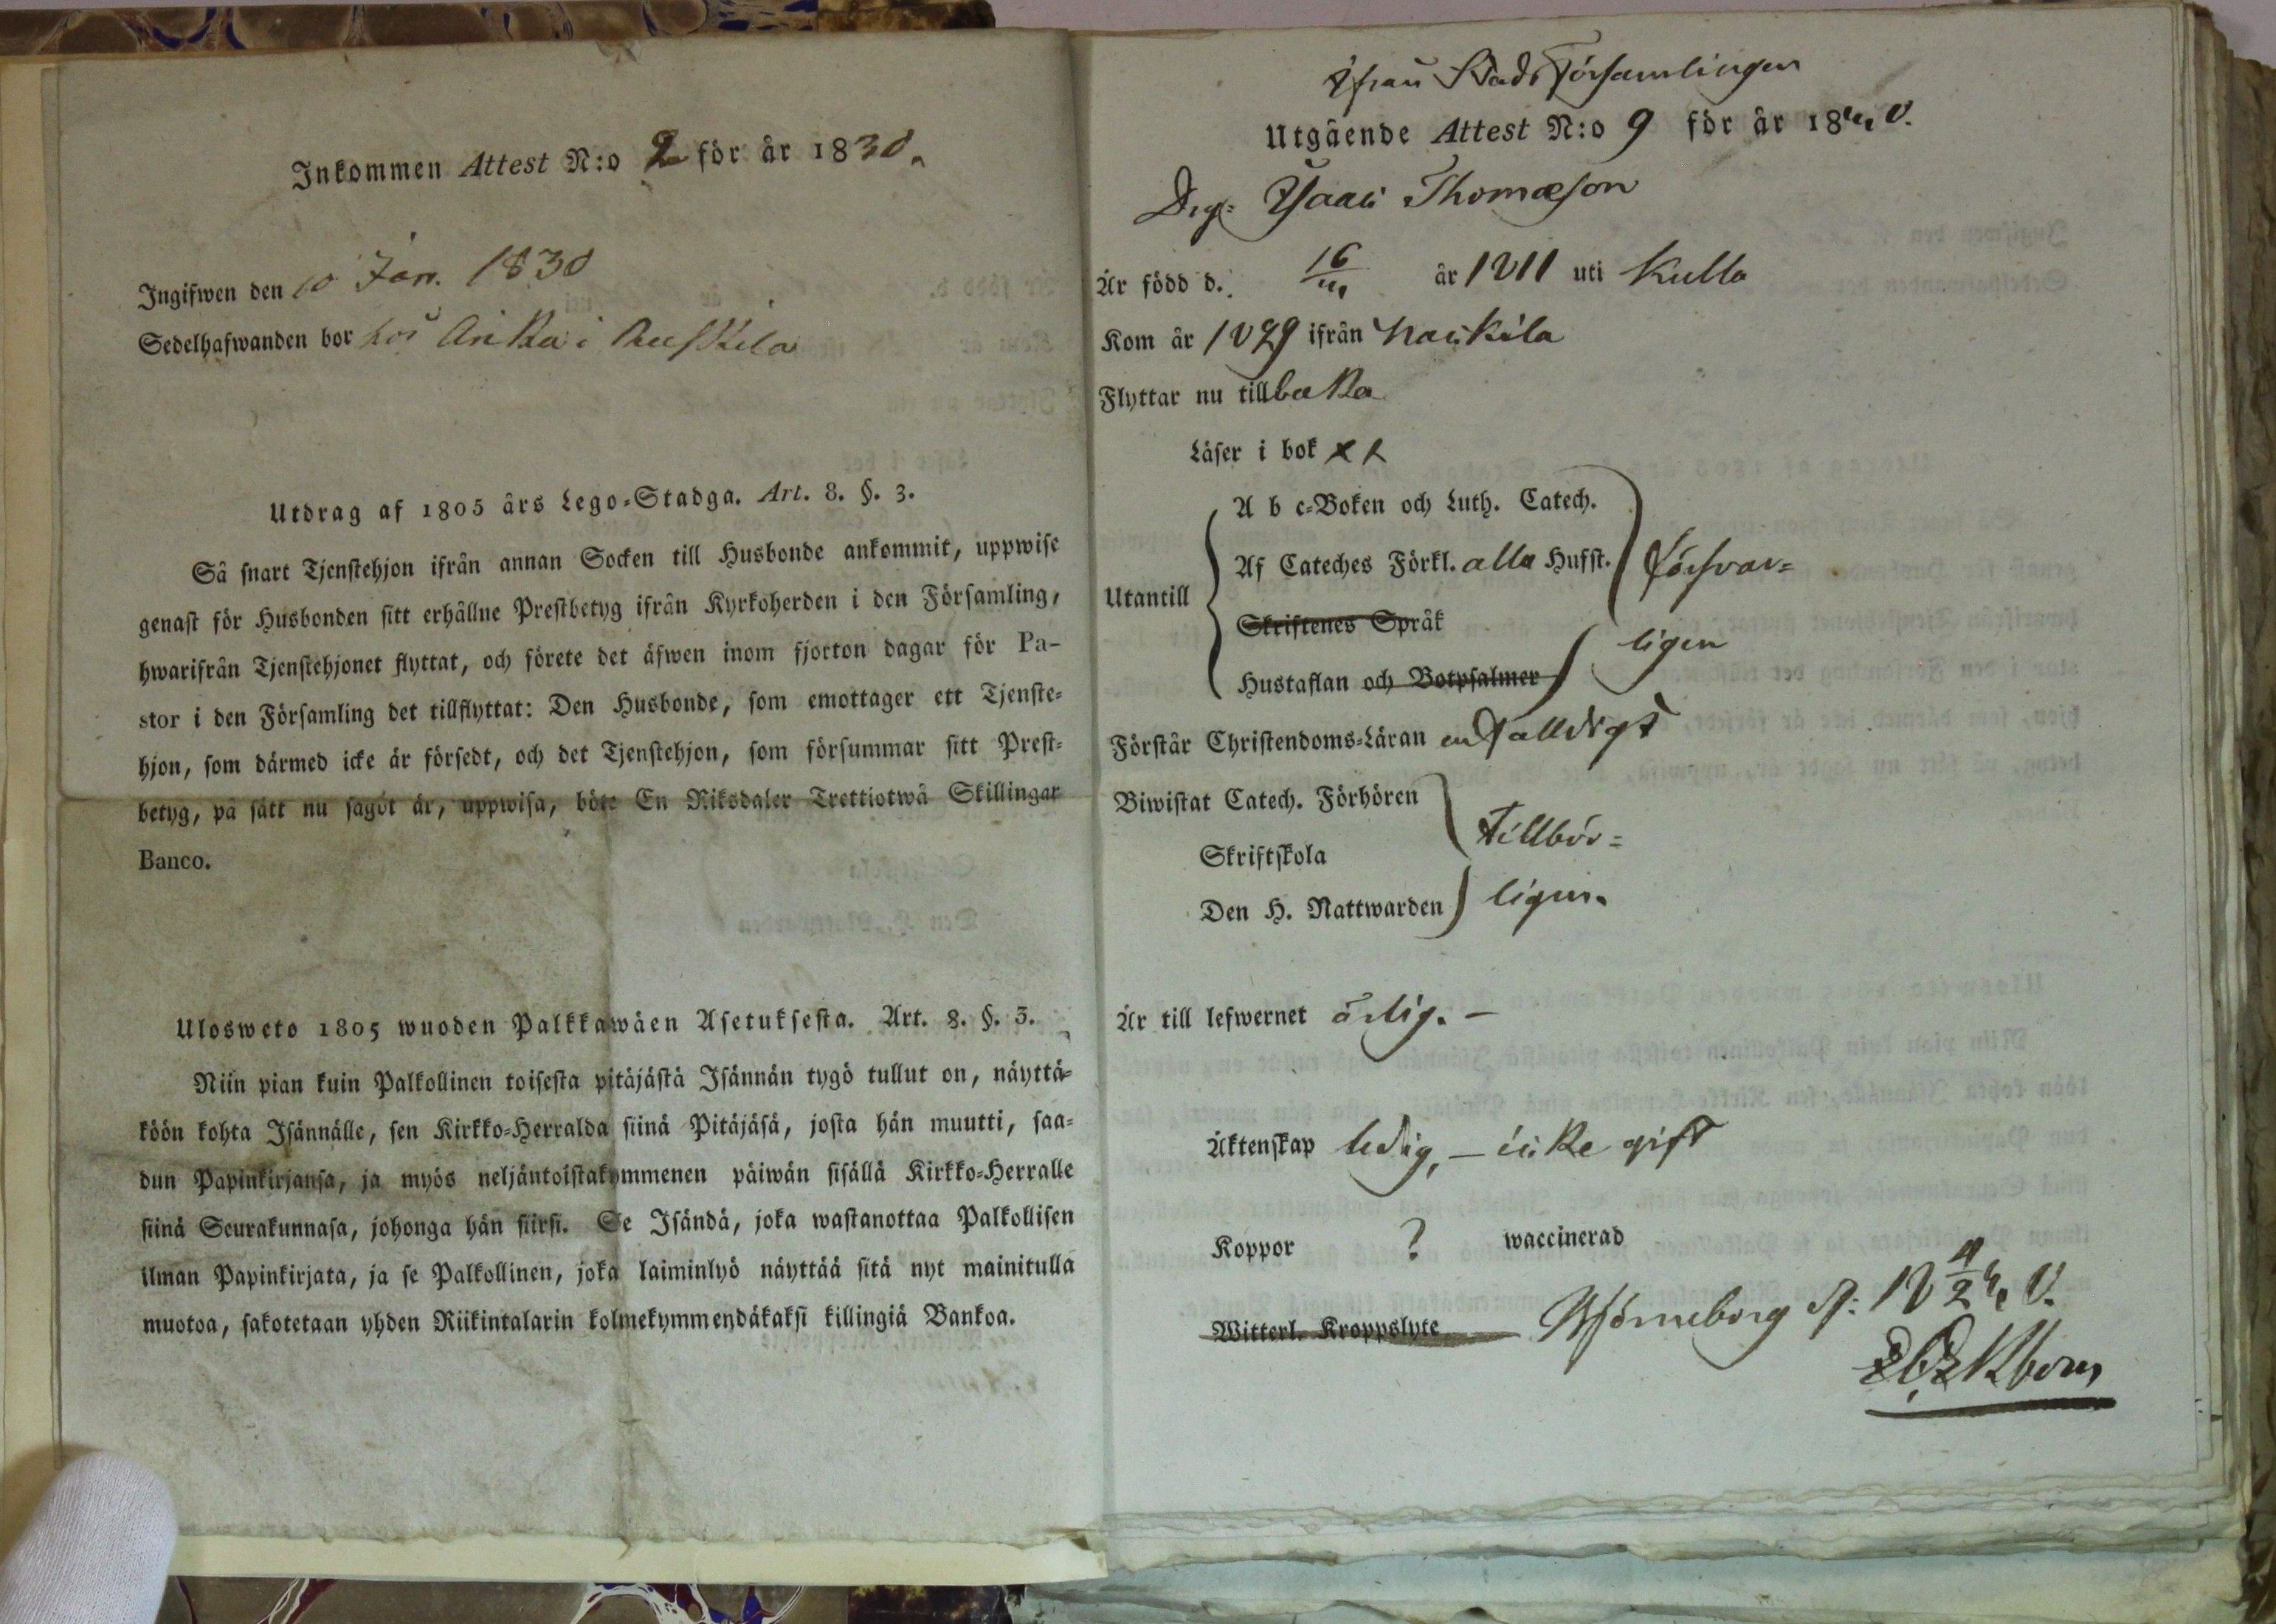 Inkommen Attest N:o 2 för år 1830.
Ingifwen den 10 Jan. 1830
Sedelhafwanden bor hos i
Utdrag af 1805 års Lego-Stadga. Art. 8. §. 3.
Så snart Tjenstehjon ifrån annan Socken till Husbonde ankommit, uppwise
genast för Husbonden sitt erhållne Prestbetyg ifrån Kyrkoherden i den Församling,
hwarifrån Tjenstehjonet flyttat, och förete det äfwen inom fjorton dagar för Pa-
stor i den Församling det tillflyttat: Den Husbonde, som emottager ett Tjenste-
hjon, som därmed icke är försedt, och det Tjenstehjon, som försummar sitt Prest-
betyg, på sätt nu sagdt är, uppwisa, böte En Riksdaler Trettiotwå Skillingar
Banco.
Ulosweto 1805 wuoden Palkkawäen Asetuksesta. Art. 8. §. 3.
Niin pian kuin Palkollinen toisesta pitäjästä Isännän tygö tullut on, näyttä-
köön kohta Isännälle, sen Kirkko-Herralda siinä Pitäjäsä, josta hän muutti, saa-
dun Papinkirjansa, ja myös neljäntoistakymmenen päiwän sisällä Kirkko-Herralle
siinä Seurakunnasa, johonga hän siirsi. Se Isändä, joka wastanottaa Palkollisen
ilman Papinkirjata, ja se Palkollinen, joka laiminlyö näyttää sitä nyt mainitulla
muotoa, sakotetaan yhden Riikintalarin kolmekymmendäkaksi killingiä Bankoa.
Ifrån Stads Församlingen
Utgående Attest N:o 9 för år 18
Drg: Isaac Thomæson
Är född d. 16 år 1811 uti Kulla
Kom år 1829 ifrån Nackila
Flyttar nu tillbaka
Läser i bok
A b c-Boken och Luth. Catech.
Af Cateches Förkl. alla Hufst. försvar-
Utantill
Skriftenes Språk
ligen
Hustaflan och Botpsalmer
Förstår Christendoms-Läran enfalldigt
Biwistat Catech. Förhören
Tillbör-
Skriftskola
Den H. Nattwarden ligen.
Är till lefwernet ärlig. —
Äktenskap ledig, — icke gift
Koppor ? waccinerad
Witterl. Kroppslyte Björneborg